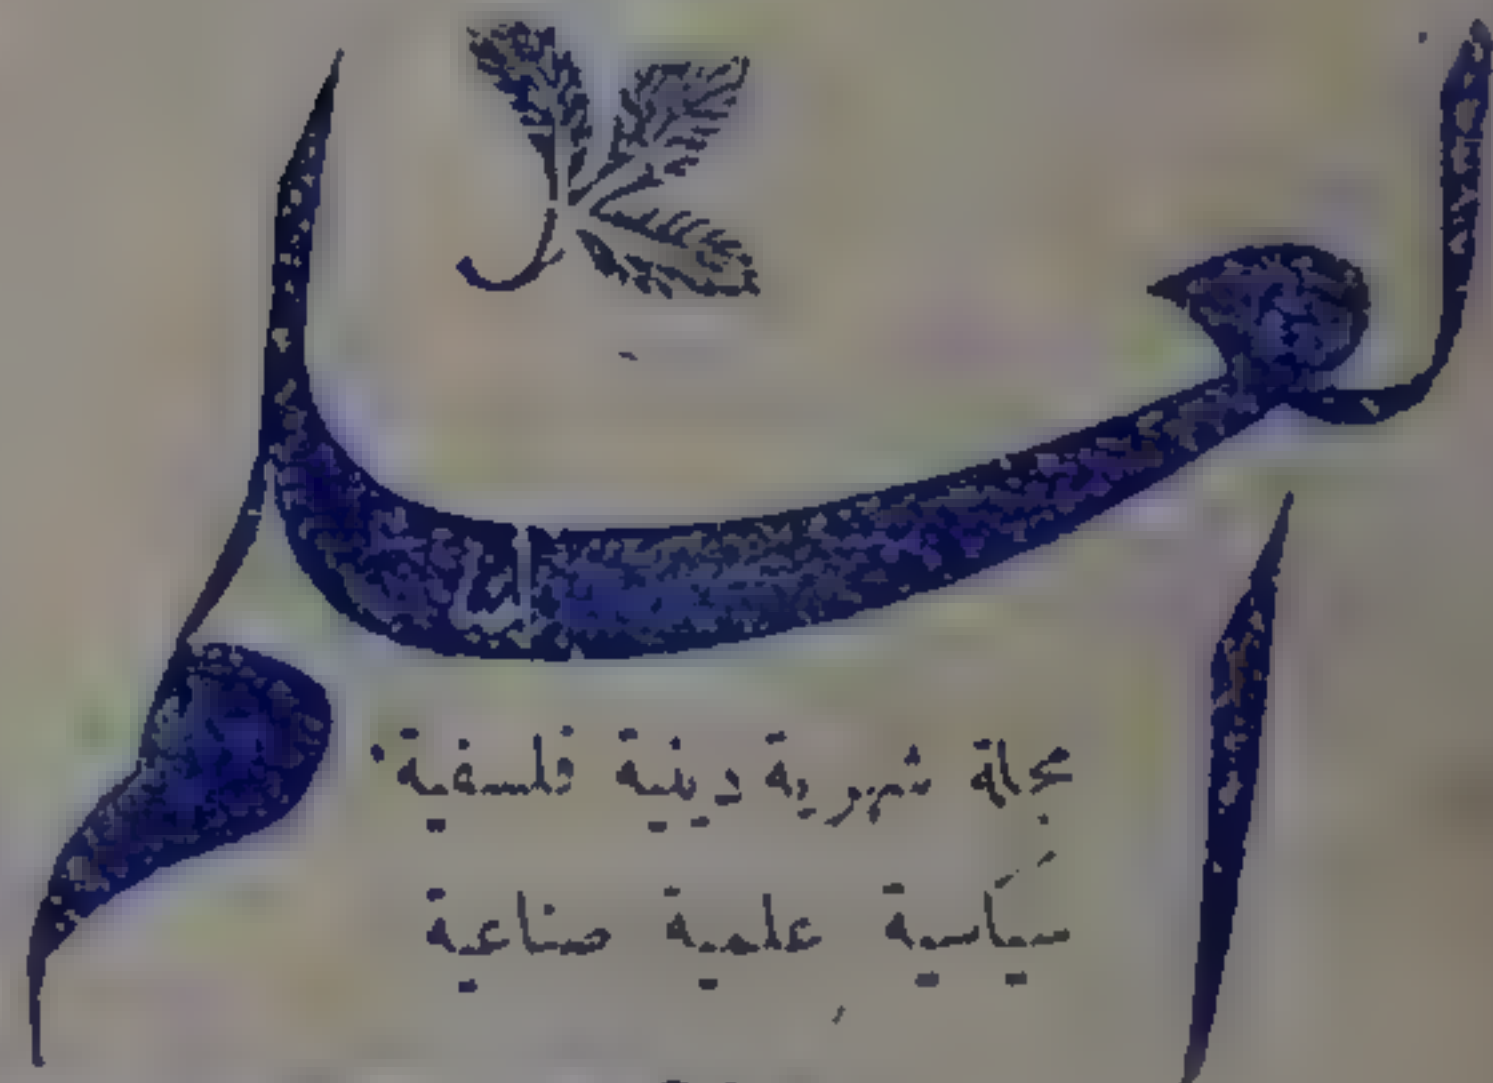 العلم
مجلة شهرية دينية فلسفية
سياسية علمية صناعية